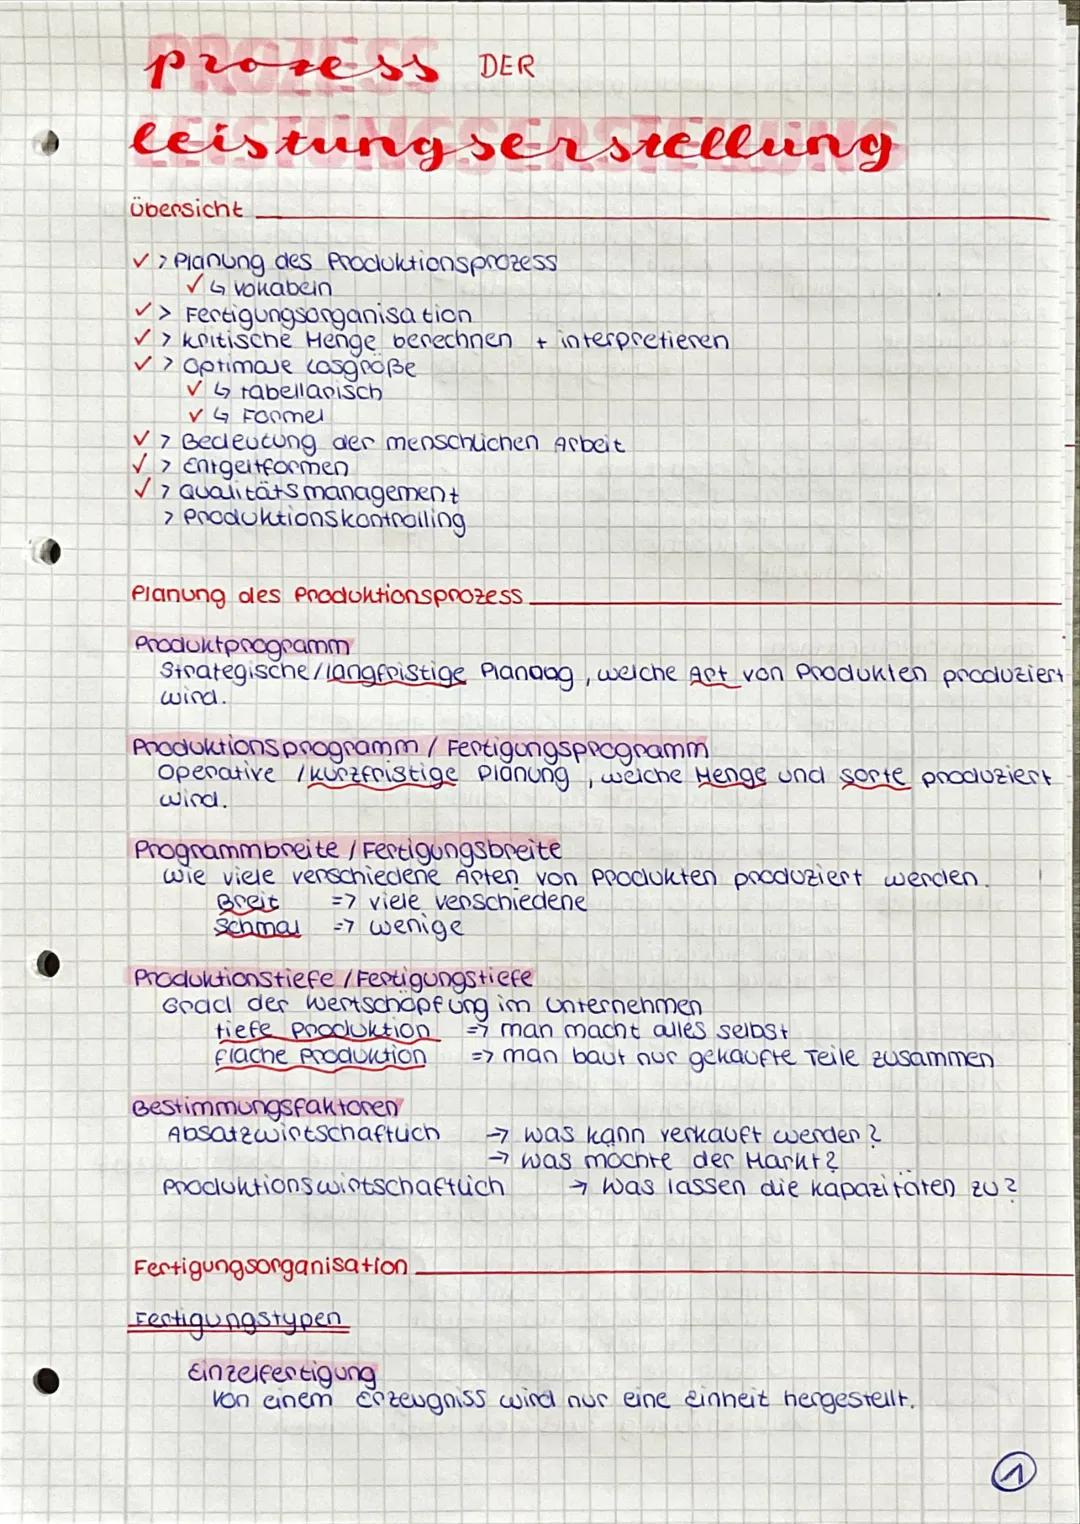 prozess DER
leistungserstellung
Übersicht
✓ > Planung des Produktionsprozess
✓ ↳ Vokabeln
✓ > Fertigungsorganisation
✓ > kritische Menge berechnen + interpretieren
✓ > Optimale Losgröße
✓ ↳ tabellarisch
✓ ↳ Formel
✓ > Bedeutung der menschlichen Arbeit
✓ > Entgeltformen
✓ > Qualitätsmanagement
> Produktionskontrolling
Planung des Produktionsprozess
Produktprogramm
Strategische/langfristige Planung, welche Art von Produkten produziert
wird.
Produktionsprogramm / Fertigungsprogramm
Operative /kurzfristige Planung, welche Menge und Sorte produziert
wird.
Programmbreite / Fertigungsbreite
Wie viele verschiedene Arten von Produkten produziert werden.
Breit => viele verschiedene
Schmal => wenige
Produktionstiefe / Fertigungstiefe
Grad der Wertschöpfung im Unternehmen
tiefe Produktion => man macht alles selbst
flache Produktion => man baut nur gekaufte Teile zusammen
Bestimmungsfaktoren
Absatzwirtschaftlich → was kann verkauft werden?
→ was möchte der Markt?
Produktionswirtschaftlich → Was lassen die Kapazitäten zu?
Fertigungsorganisation
Fertigungstypen
Einzelfertigung
Von einem Erzeugniss wird nur eine Einheit hergestellt.
1